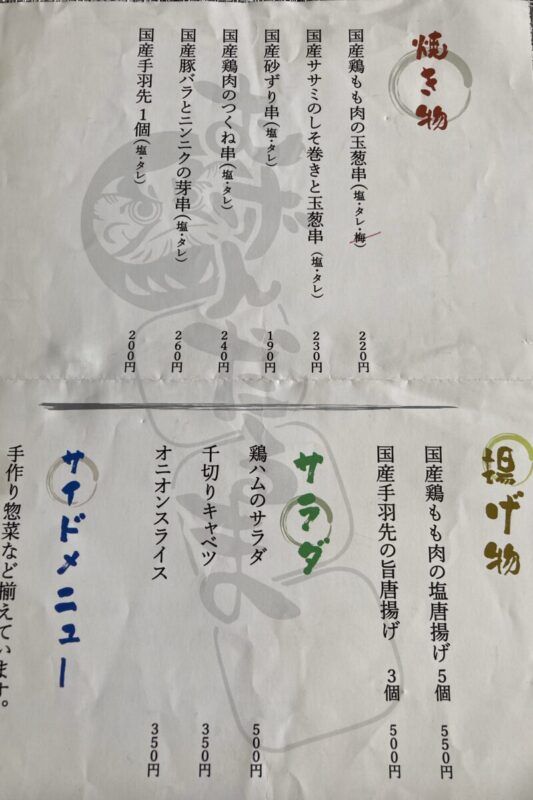 焼き物
国産鶏もも肉の玉葱串(塩・タレ・梅) 220円
国産ササミのしそ巻きと玉葱串(塩・タレ) 230円
国産砂ずり串(塩・タレ) 190円
国産鶏肉のつくね串(塩・タレ) 240円
国産豚バラとニンニクの芽串(塩・タレ) 260円
国産手羽先1個(塩・タレ) 200円
揚げ物
国産鶏もも肉の塩唐揚げ 5個 550円
国産手羽先の旨唐揚げ 3個 500円
サラダ
鶏ハムのサラダ 500円
千切りキャベツ 350円
オニオンスライス 350円
サイドメニュー
手作り惣菜など揃えています。